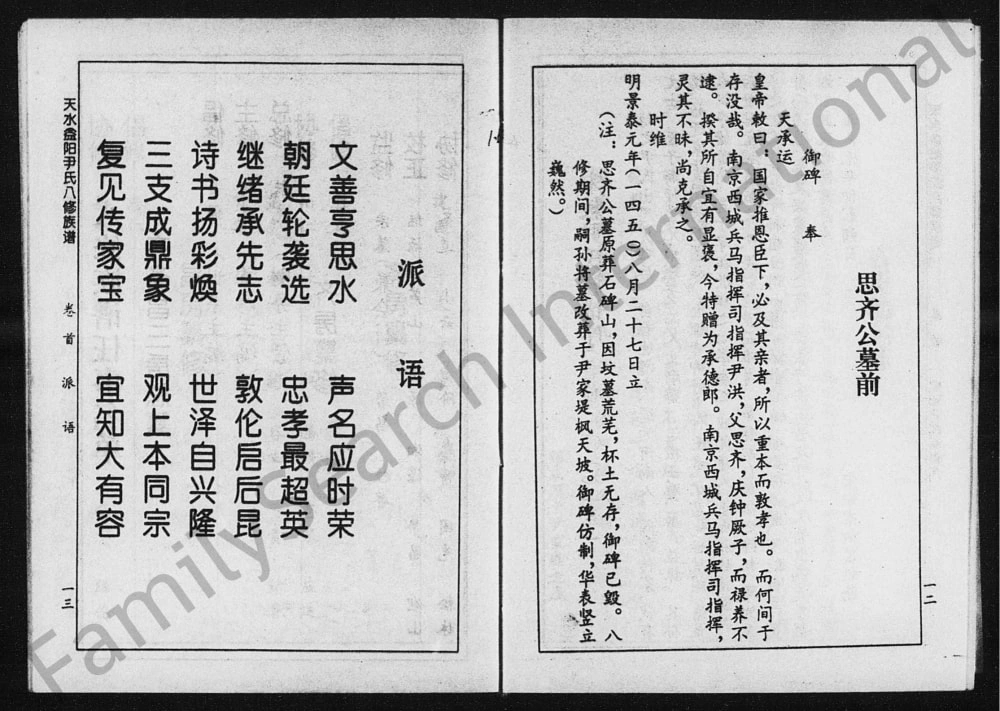 思齐公墓前
御碑　奉
天承运
皇帝敕曰：国家推恩臣下，必及其亲者，所以重本而敦孝也。而何间于
存没哉。南京西城兵马指挥司指挥尹洪，父思齐，庆钟厥子，而禄养不
逮。揆其所自宜有显褒，今特赠为承德郎。南京西城兵马指挥司指挥，
灵其不昧，尚克承之。
时维
明景泰元年（一四五〇）八月二十七日立
（注：思齐公墓原葬石碑山，因坟墓荒芜，杯土无存，御碑已毁。八
修期间，嗣孙将墓改葬于尹家堤枫天坡。御碑仿制，华表竖立
巍然。）
一二
派语
文善亨思水　声名应时荣
朝廷轮袭选　忠孝最超英
继绪承先志　敦伦启后昆
诗书扬彩焕　世泽自兴隆
三支成鼎象　观上本同宗
复见传家宝　宜知大有容
天水益阳尹氏八修族谱　卷首　派语
一三
FamilySearch International